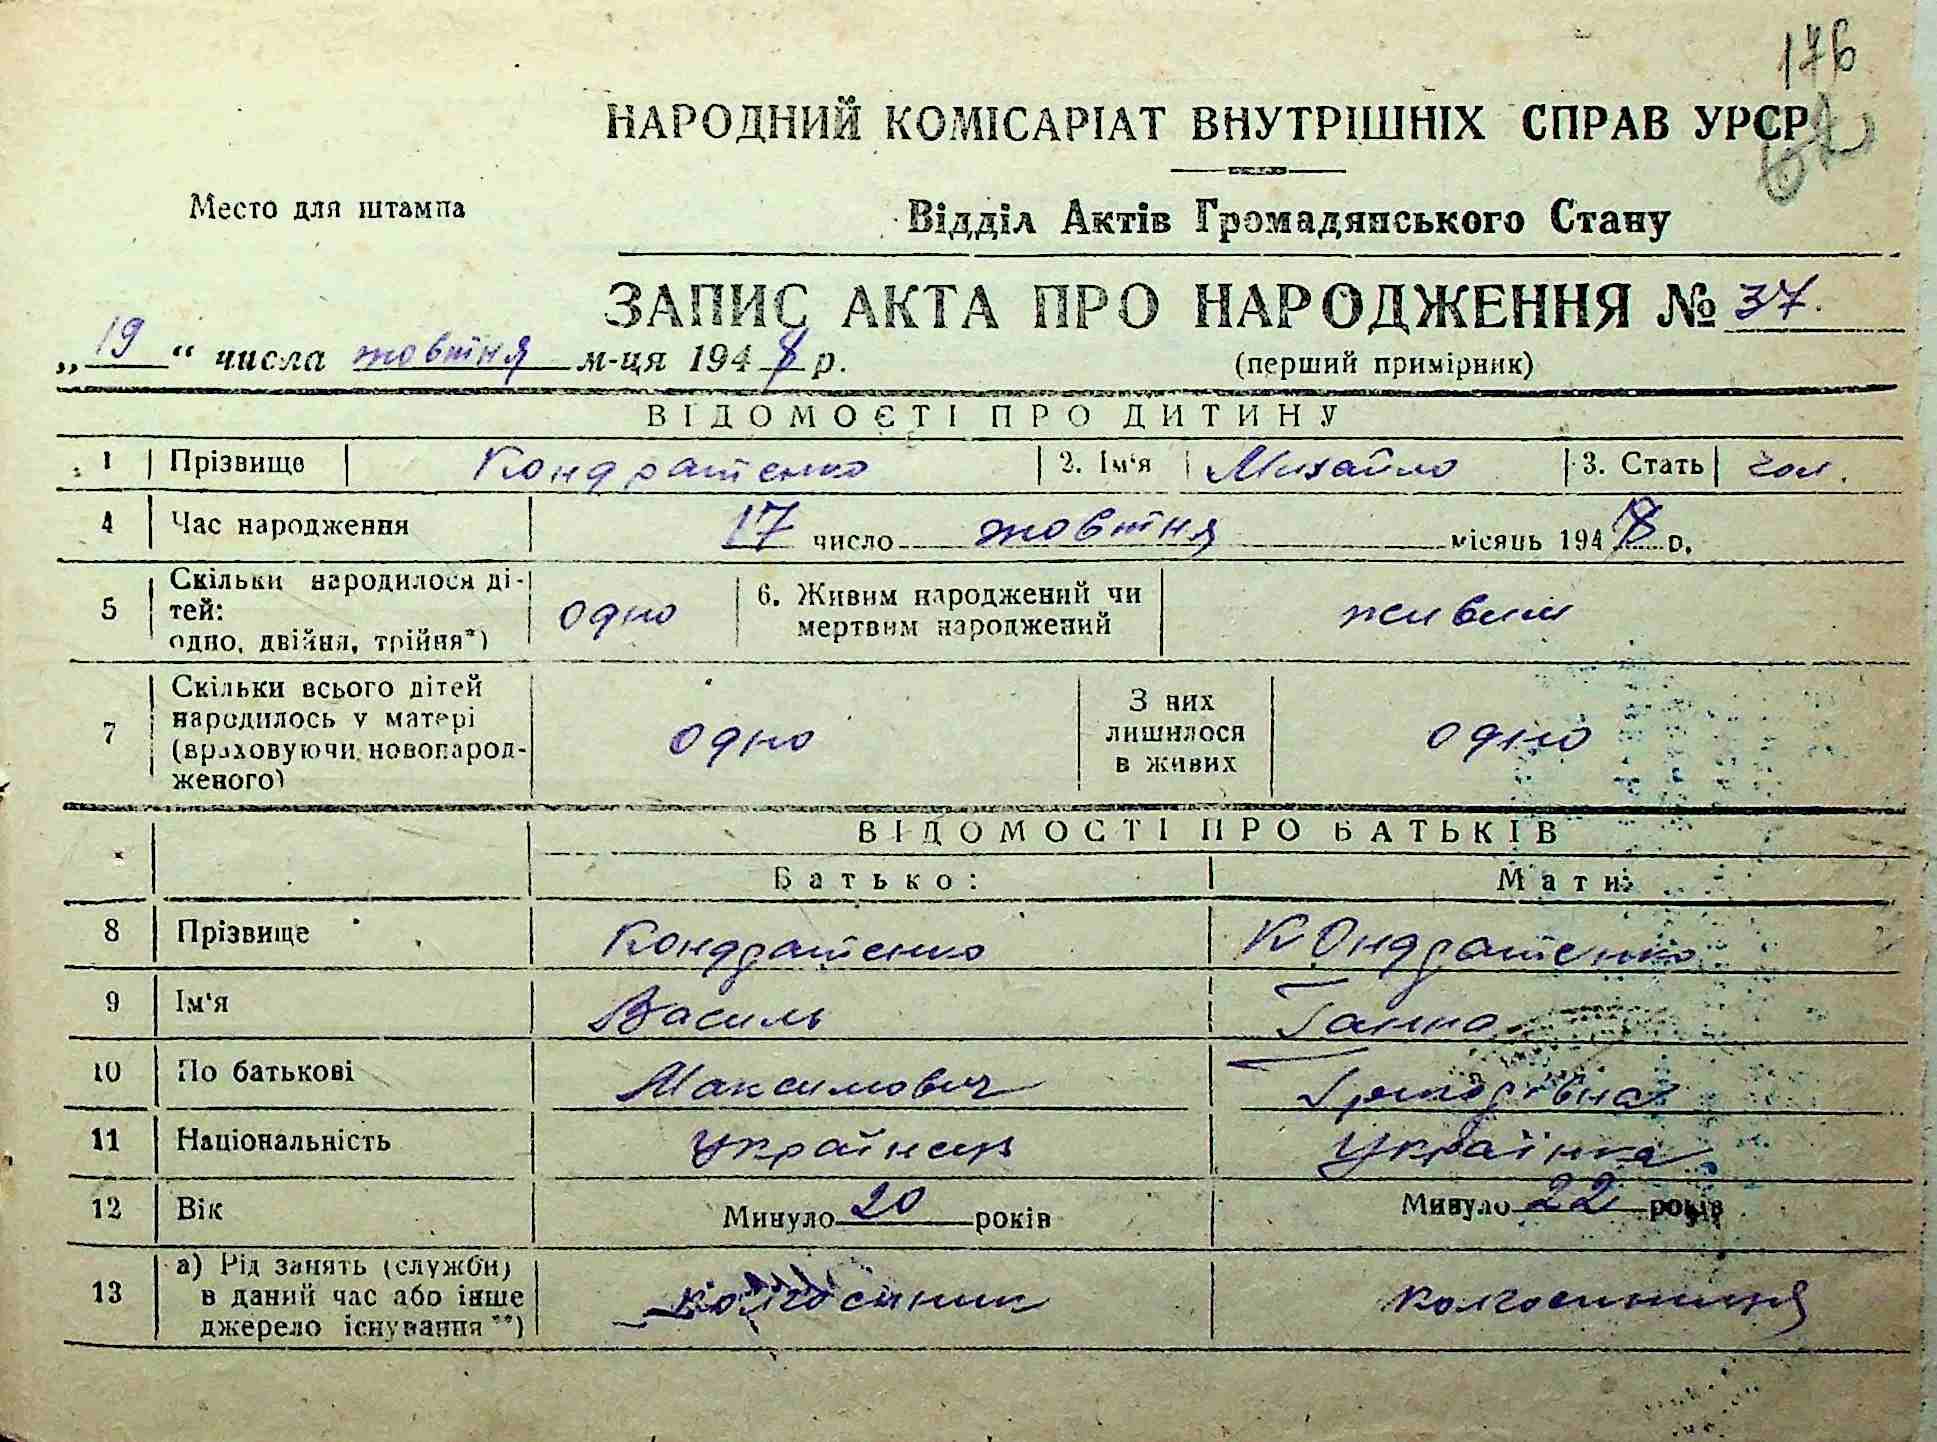 176
НАРОДНИЙ КОМІСАРІАТ ВНУТРІШНІХ СПРАВ УРСР
Место для штампа
Відділ Актів Громадянського Стану
ЗАПИС АКТА ПРО НАРОДЖЕННЯ № 37.
„19“ числа жовтня м-ця 1948 р.
(перший примірник)
ВІДОМОЄТІ ПРО ДИТИНУ
1 Прізвище Кондратенко 2. Ім‘я Михайло 3. Стать чол.
4 Час народження 17 число жовтня місяць 1948 р.
5 Скільки народилося ді-
тей:
одно, двійня, трійня*) одно 6. Живим народжений чи
мертвим народжений живим
7 Скільки всього дітей
народилось у матері
(враховуючи новонарод-
женого) одно З них
лишилося
в живих одно
ВІДОМОСТІ ПРО БАТЬКІВ
Батько: Мати:
8 Прізвище Кондратенко Кондратенко
9 Ім‘я Василь Ганна
10 По батькові Максимович
11 Національність українець українка
12 Вік Минуло 20 років Минуло 22 років
13 а) Рід занять (служби)
в даний час або інше
джерело існування**) колгоспник колгоспниця